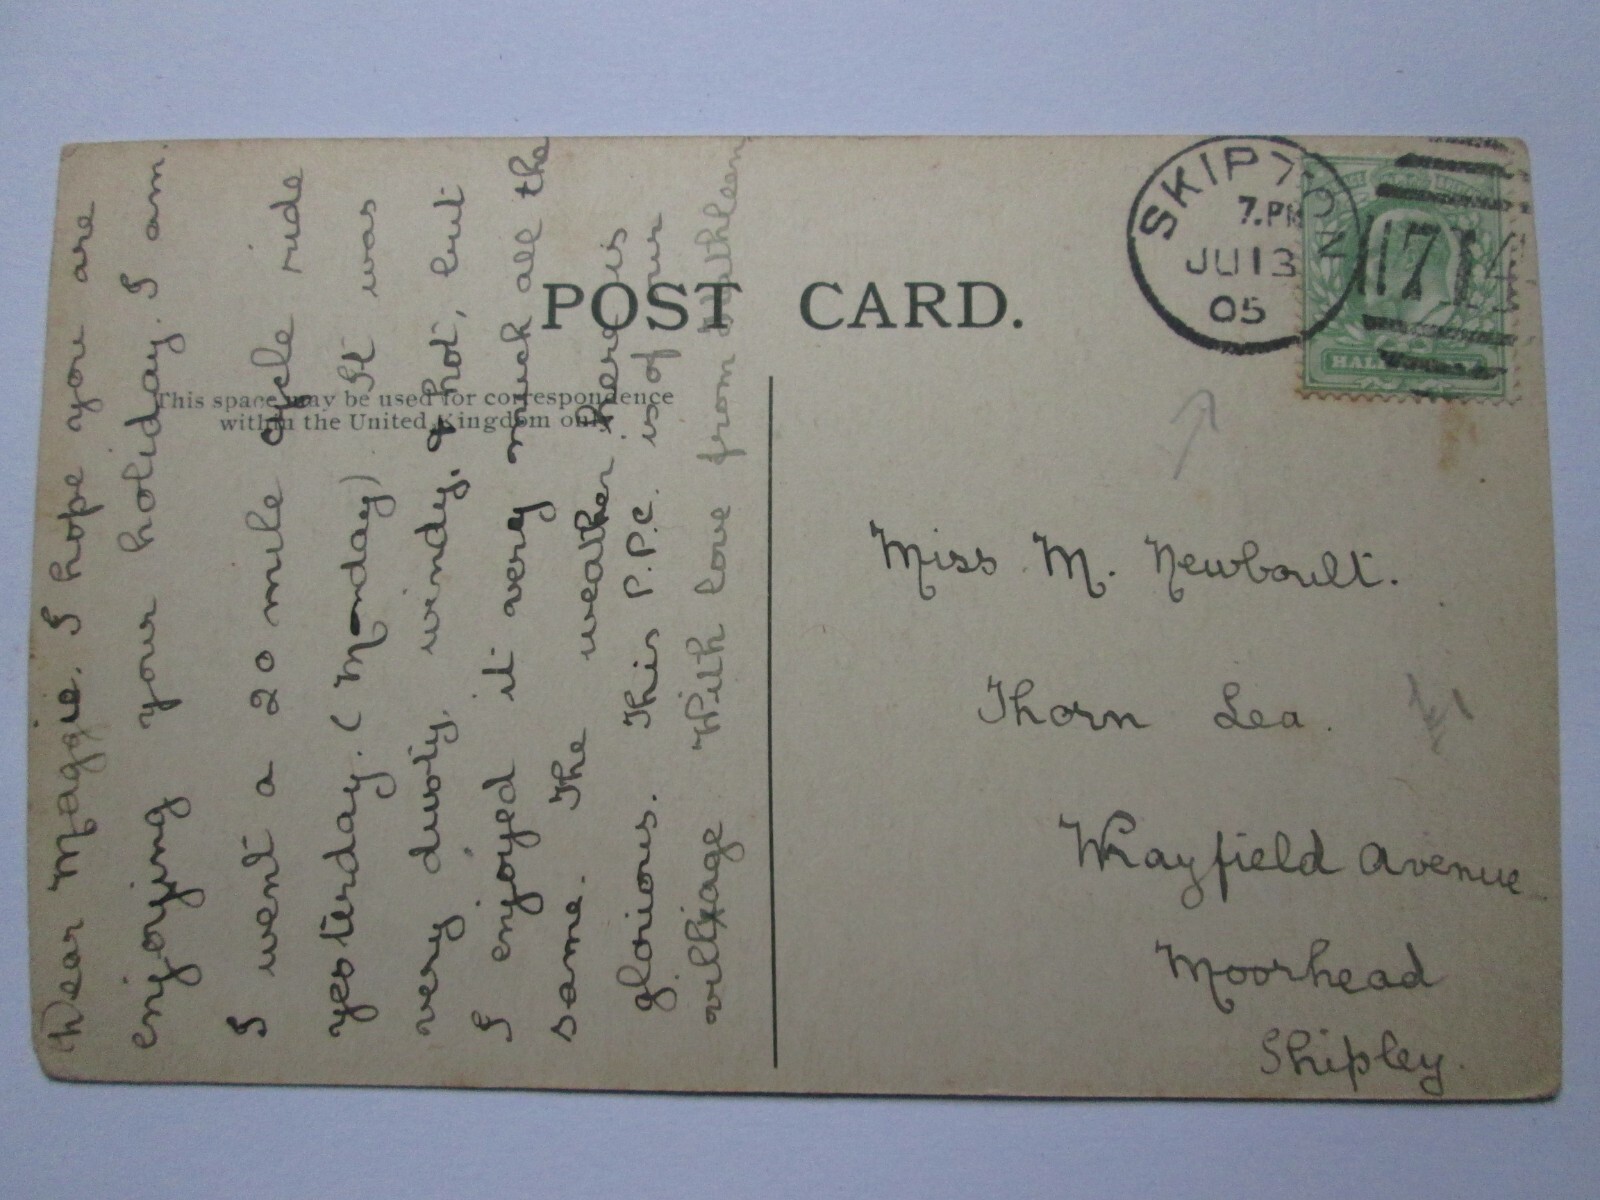 POST CARD.
This space may be used for correspondence
within the United Kingdom only
SKIPTON
7.PM
JU 13
05
714
HAL
Dear Maggie. I hope you are
enjoying your holiday. I am.
I went a 20 mile cycle ride
yesterday. (Monday) It was
very dusty, windy, & hot, but
I enjoyed it very much all the
same. The weather here is
glorious. This P.P.C. is of our
village With love from Kathleen
Miss M. Newboult.
Thorn Lea.
Wrayfield Avenue
Moorhead
Shipley.